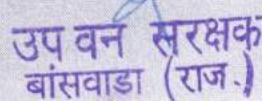 उप वन सरक्षक
बांसवाडा (राज.)